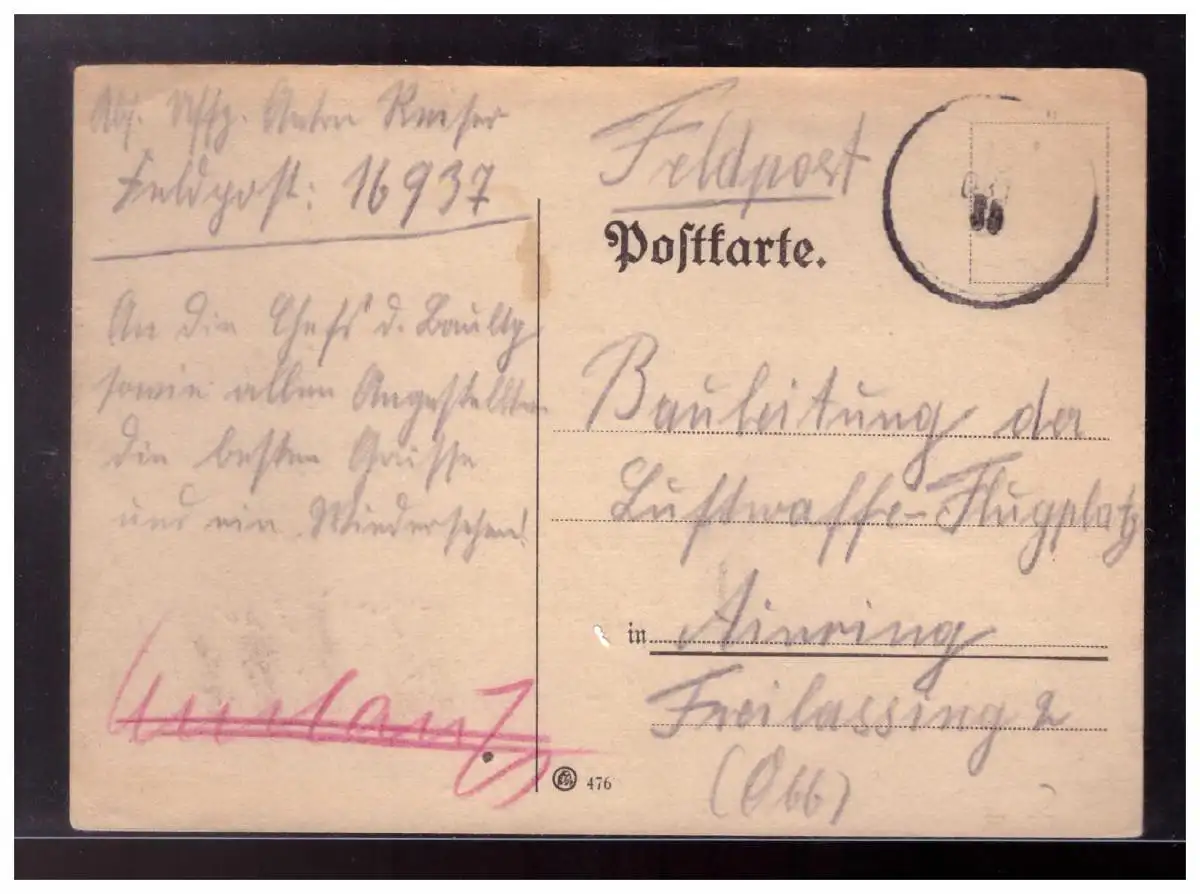 Abs. Uffz. Anton Kaiser
Feldpost: 16937
An die Chefs d. Baultg
sowie allen Angestellten
die besten Grüsse
und ein Wiedersehen!
Umlauf
Feldpost
Postkarte.
Bauleitung der
Luftwaffe-Flugplatz
in Ainring
Freilassing 2
(Obb)
476